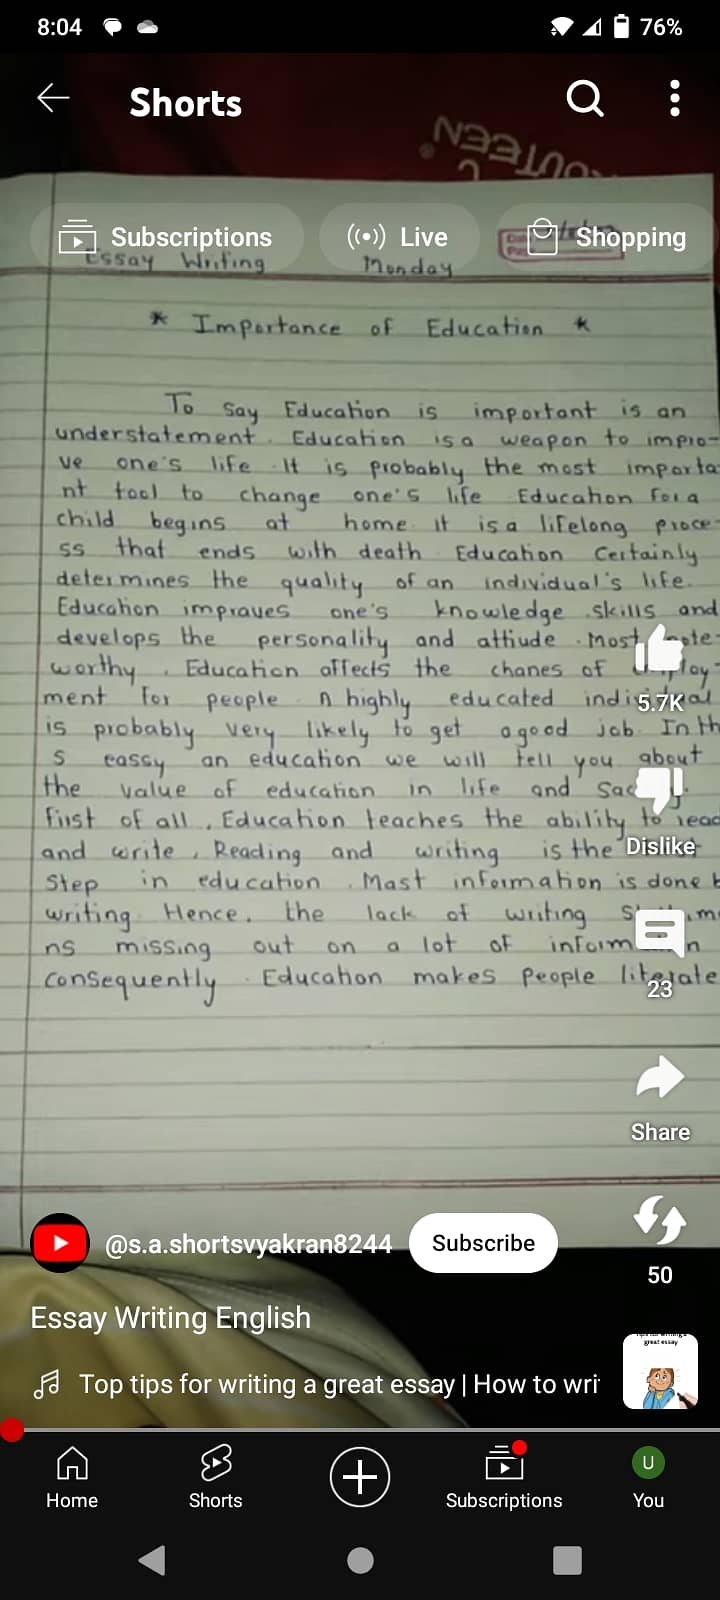 8:04
76%
Shorts
Subscriptions
Live
Shopping
Essay Writing
Monday
* Importance of Education *
To say Education is important is an
understatement. Education is a weapon to impro-
ve one's life. It is probably the most importa
nt tool to change one's life Education for a
child begins at home. it is a lifelong proce-
ss that ends with death. Education Certainly
determines the quality of an individual's life.
Education impraves one's knowledge . skills and
develops the personality and attiude . Most
worthy . Education affects the chanes of
ment for people . A highly educated
is probably very likely to get a good job. In th
s eassy an education we will tell you about
the value of education in life and
first of all , Education teaches the ability to read
and write , Reading and writing is the
Step in education . Mast information is done b
writing. Hence, the lack of writing
ns missing out on a lot of
consequently . Education makes People literate
5.7K
Dislike
23
Share
50
@s.a.shortsvyakran8244
Subscribe
Essay Writing English
Top tips for writing a great essay | How to wri
great essay
Home
Shorts
Subscriptions
U
You